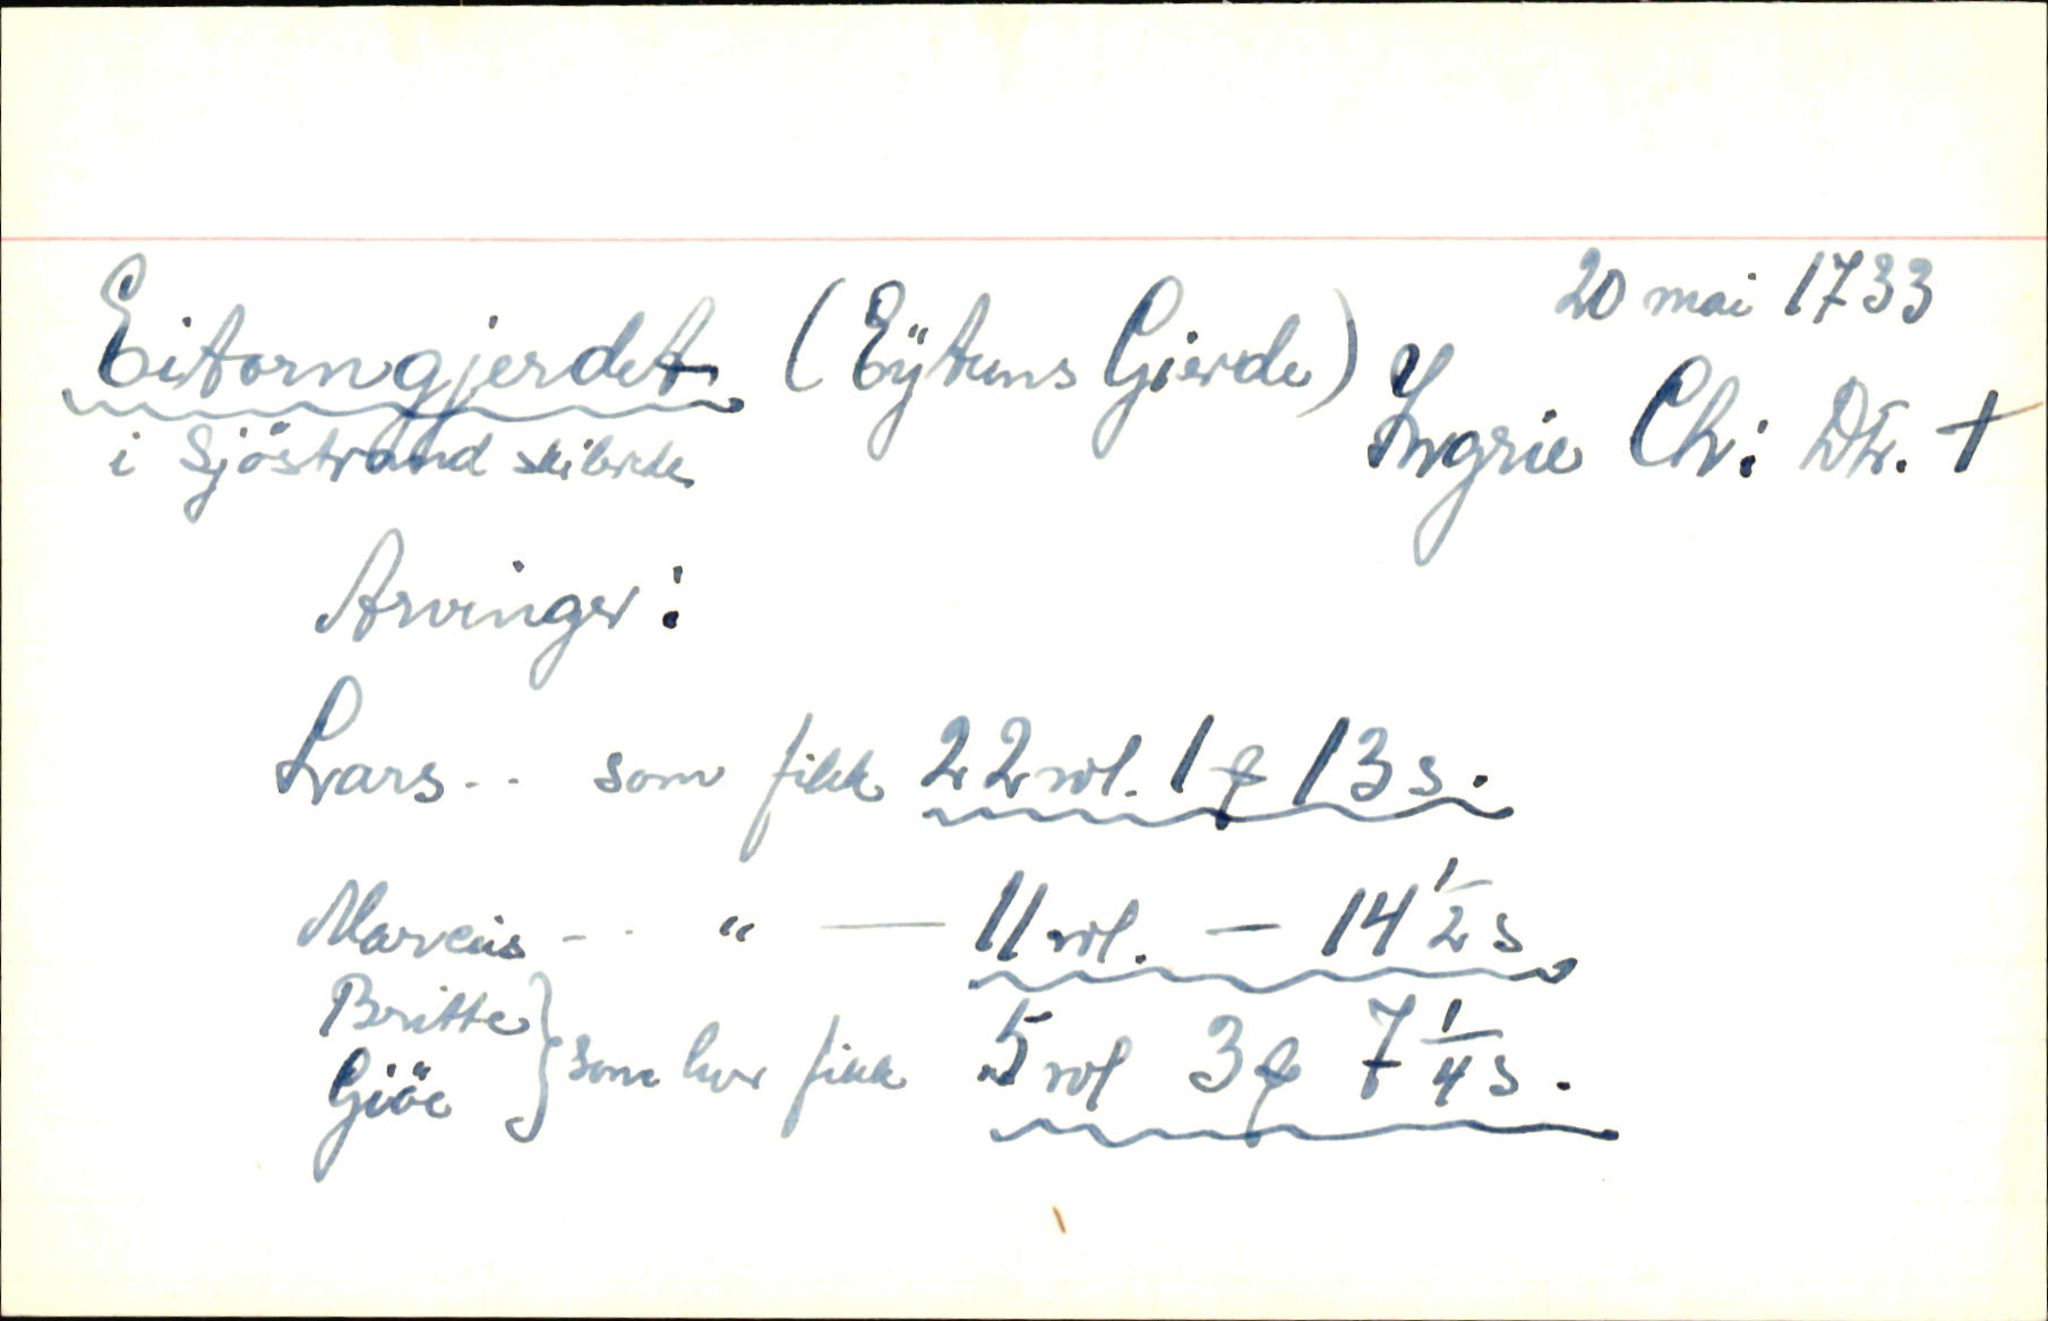 20 mai 1733
Eitorngjerdet (Eÿtuns Gierde) Ingrie Ch: Dtr. †
i Sjöstrand skibrede
Arvinger:
Lars - - som fikk 22 rdl. 1 ƒ 13 s.
Marcus - - " — 11 rdl. - 14 1/2 s
Britte
Giöe } som hver fikk 5 rdl 3 ƒ 7 1/4 s.